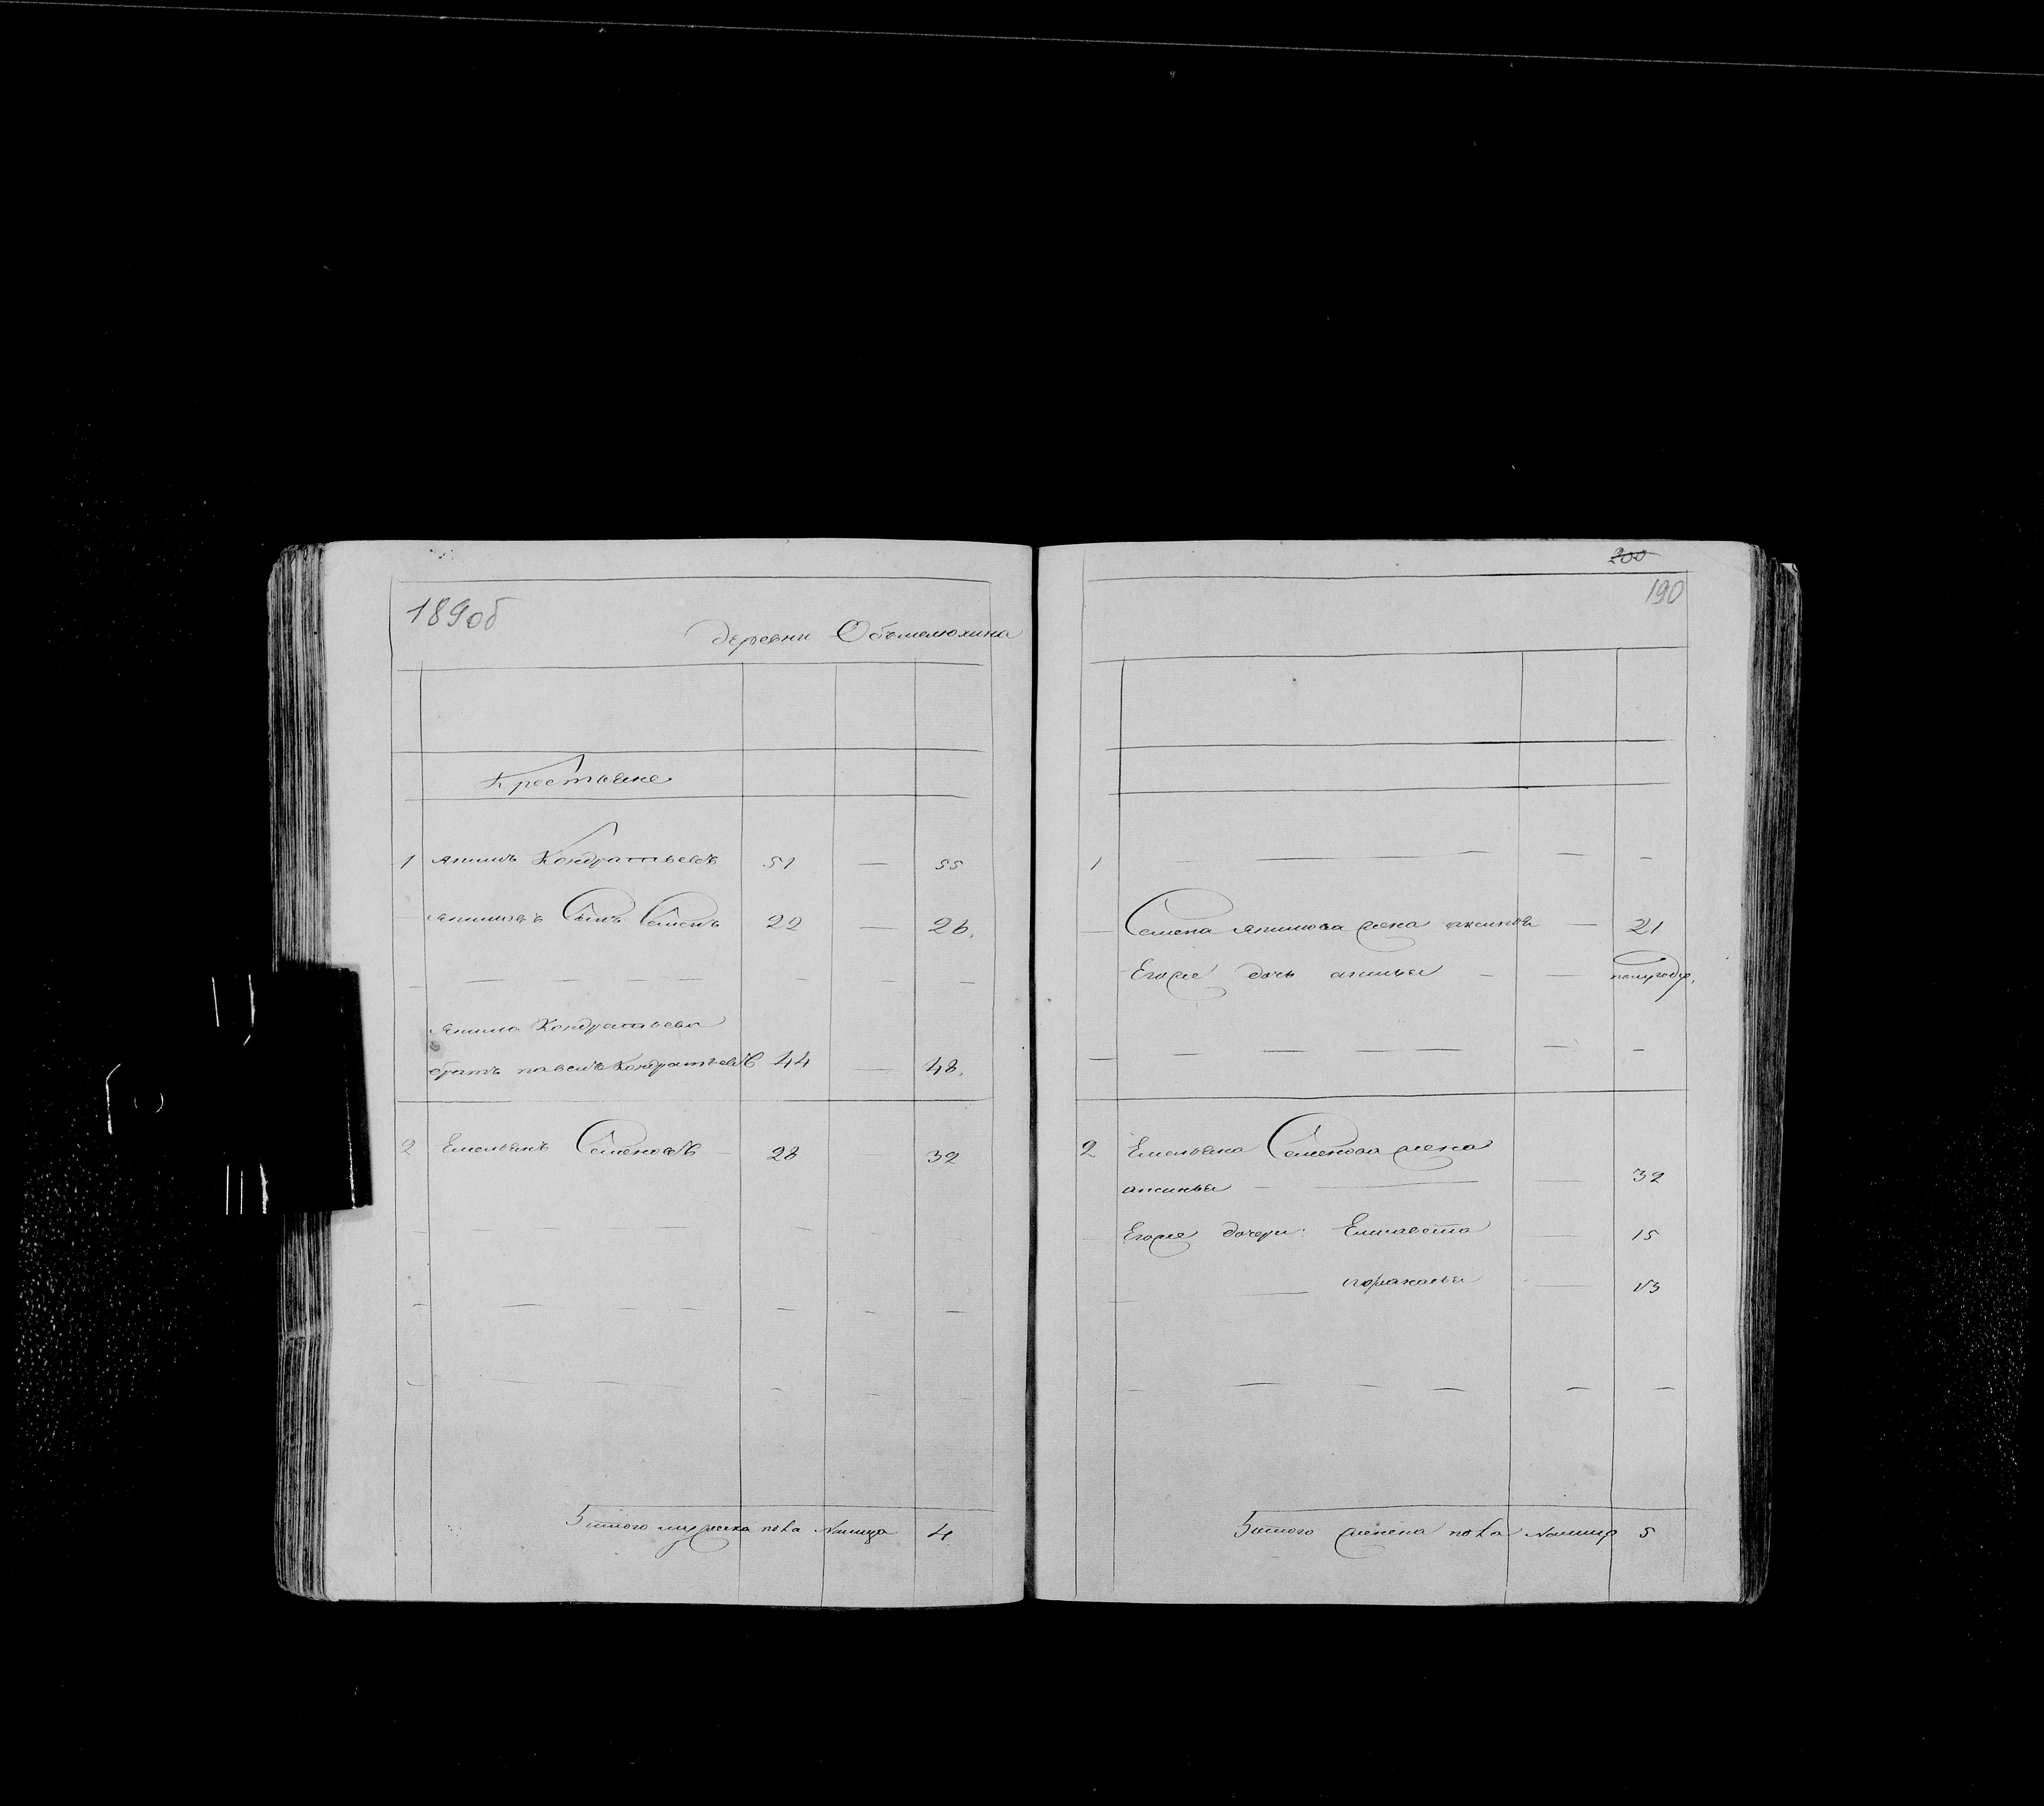 189об
деревни Объмелюхина
Крестьяне
1 якимъ Кондратьевъ 51 — 55
якимовъ Сынъ Семенъ 22 — 26.
якима Кондратьева
братъ павелъ Кондратьевъ 44 — 48.
2 Емельянъ Семеновъ — 28 32
Итого мужеска пола Налицо 4
200
190
1 — — —
Семена якимова жена аксинья — 21
Егоже дочь — — полугоду.
2 Емельяна Семенова жена
аксинья — 32
Егоже дочери: Елисавета — 15
— 13
Итого женска пола Налицо 5